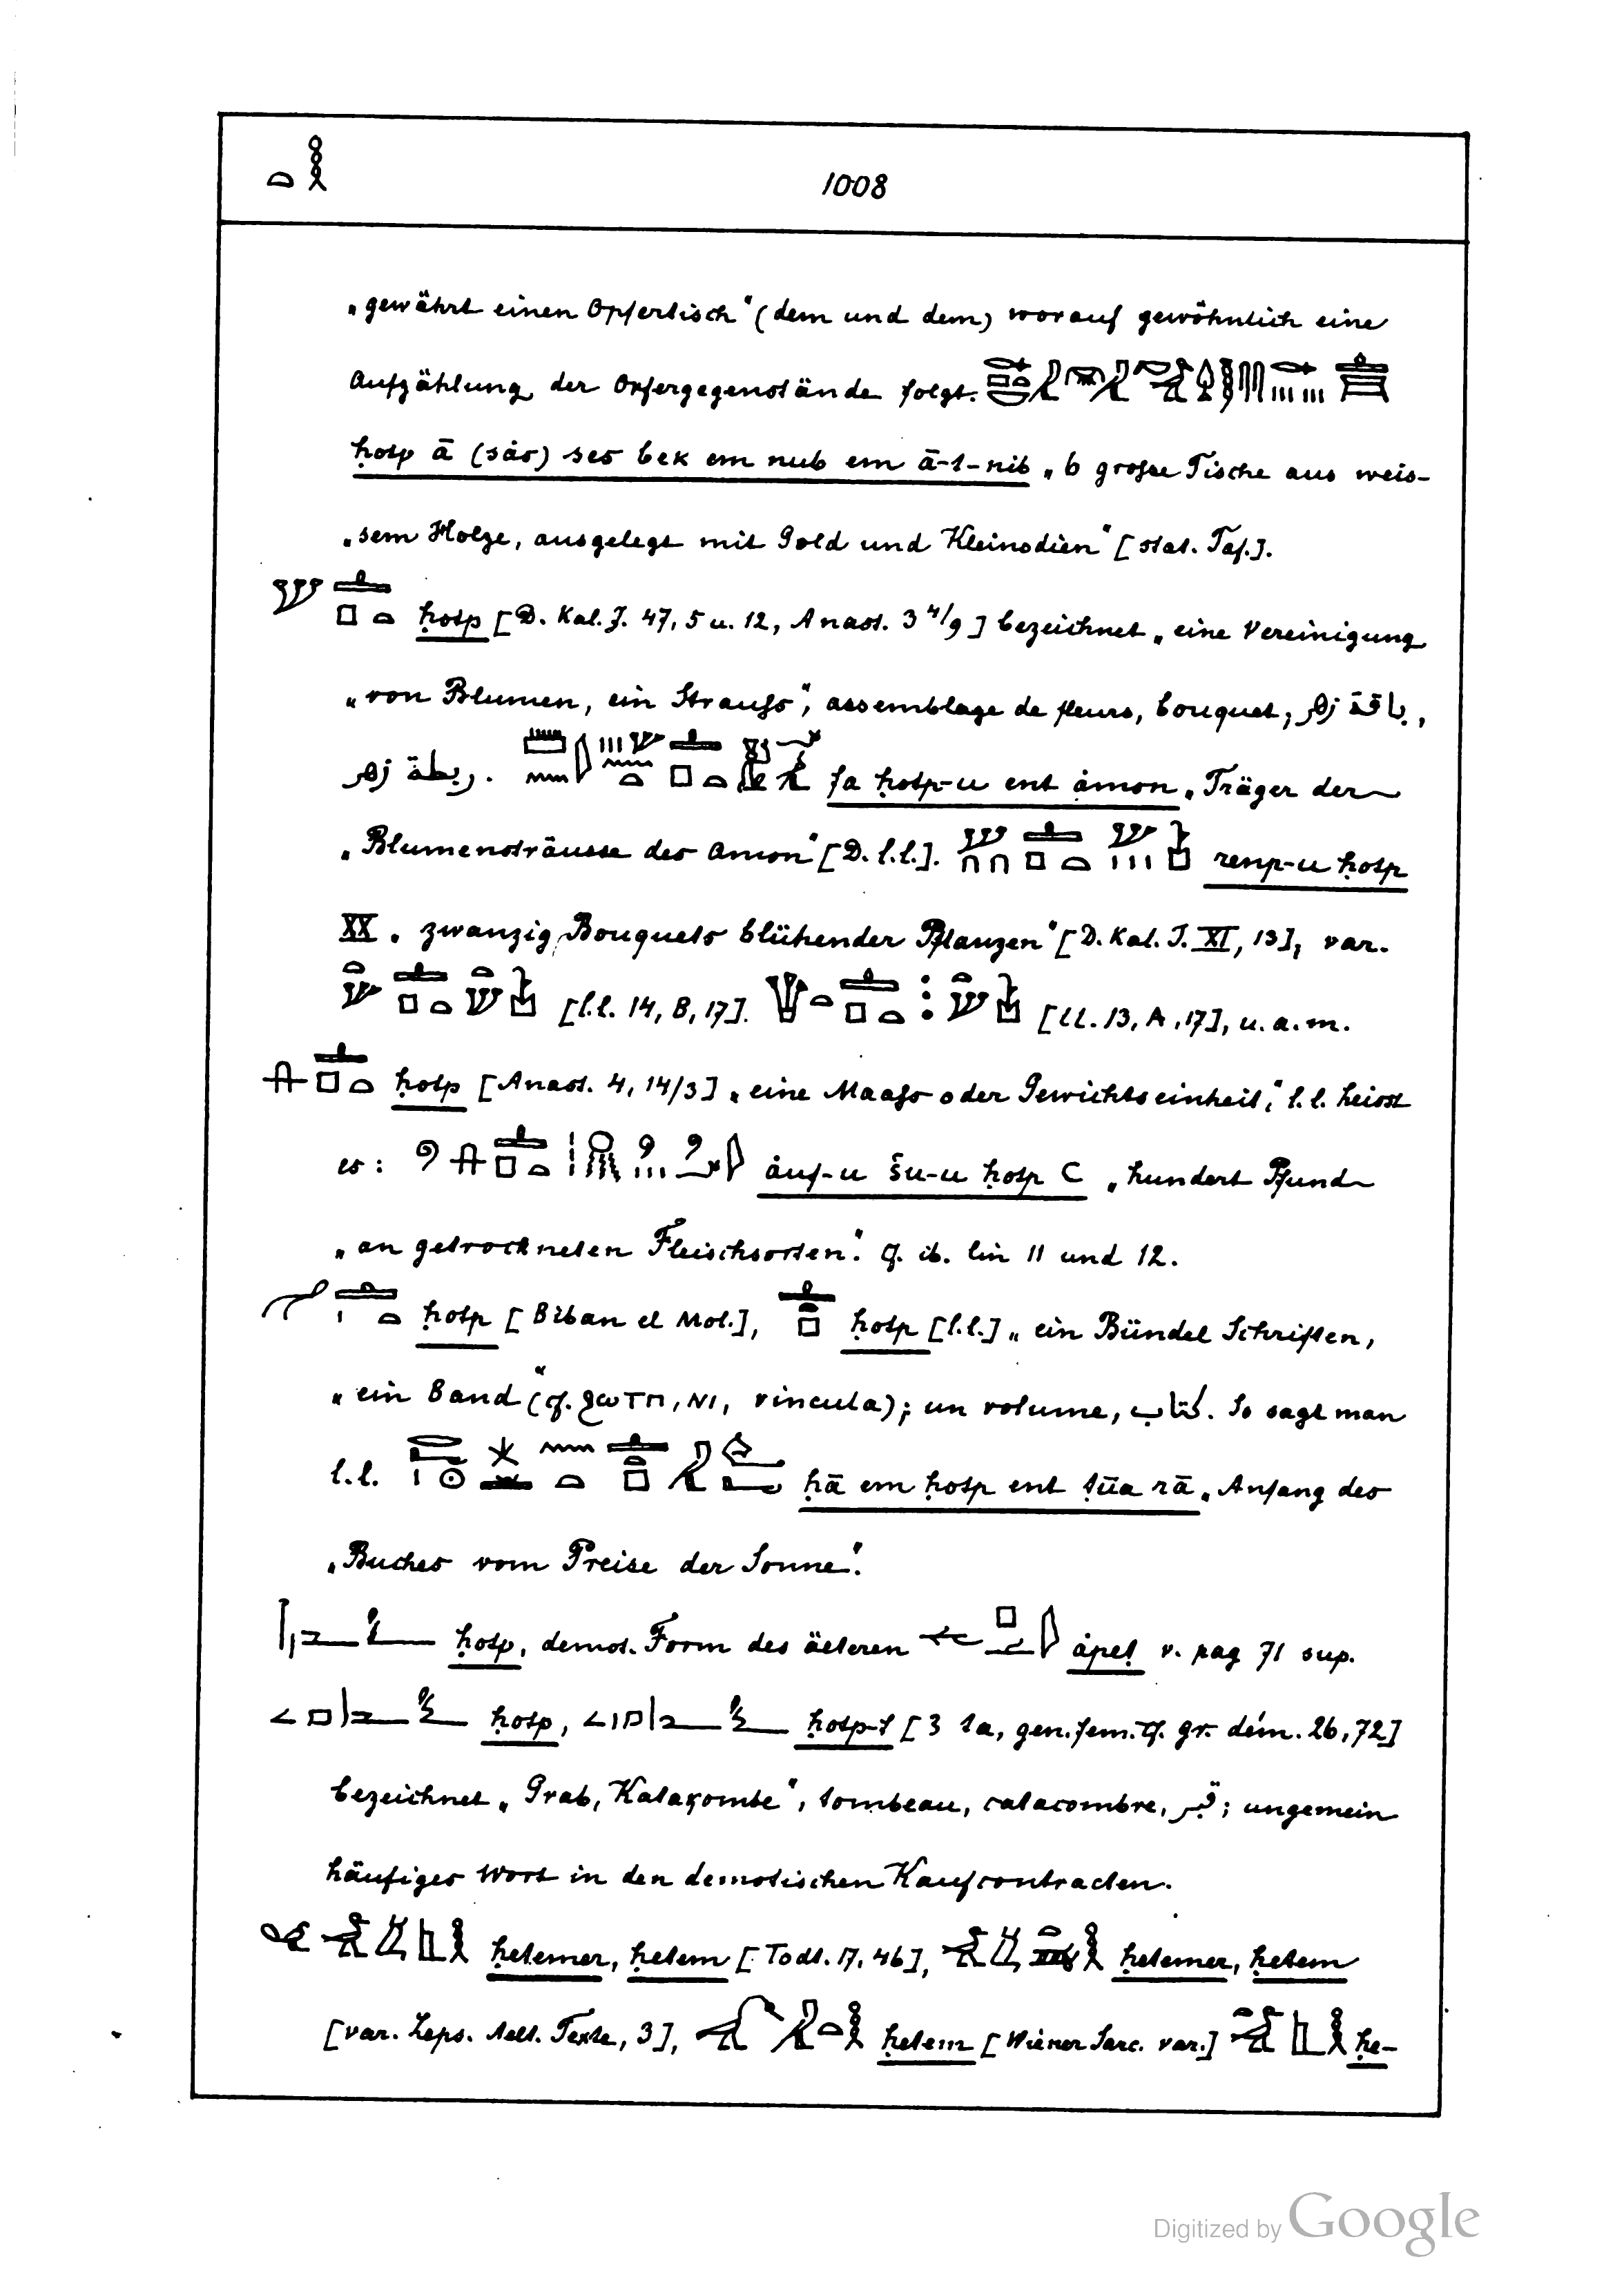 1008
„gewährt einen Opfertisch“ (dem und dem) worauf gewöhnlich eine
Aufzählung der Opfergegenstände folgt.
ḥotp ā (sȧs) ses bek em nub em ā-t-nib „6 große Tische aus weis-
„sem Holze, ausgelegt mit Gold und Kleinodien“ [stat. Taf.].
ḥotp [D. Kal. J. 47, 5 u. 12, Anast. 3 4/9] bezeichnet „eine Vereinigung
„von Blumen, ein Strauß“, assemblage de fleurs, bouquet; باقة زهر,
ربطة زهر. fa ḥotp-u ent ȧmon „Träger der
„Blumensträusse des Amon“ [D. l.l.]. renp-u ḥotp
XX „zwanzig Bouquets blühender Pflanzen“ [D. Kal. J. XI, 13], var.
[l.l. 14, B, 17]. [l.l. 13, A, 17], u. a. m.
ḥotp [Anast. 4, 14/3] „eine Maaß oder Gewichtseinheit“, l. l. heisst
es: ȧuf-u šu-u ḥotp C „hundert Pfund
„an getrockneten Fleischsorten“. cf. ib. lin 11 und 12.
ḥotp [Biban el Mol.], ḥotp [l.l.] „ein Bündel Schriften,
„ein Band“ (cf. ϩωτπ, ⲛⲓ, vincula); un volume, كتاب. So sagt man
l.l. ḥā em ḥotp ent ṭūa rā „Anfang des
„Buches vom Preise der Sonne“.
ḥotp, demot. Form des älteren ȧpeṭ v. pag 71 sup.
ḥotp, ḥotp-t [3 ta, gen. fem. cf. gr. dém. 26, 72]
bezeichnet „Grab, Katakombe“, tombeau, catacombre, قبر; ungemein
häufiges Wort in den demotischen Kaufcontracten.
ḥetemer, ḥetem [Todt. 17, 46], ḥetemer, ḥetem
[var. Leps. Aelt. Texte, 3], ḥetem [Wiener Sarc. var.] ḥe-
Digitized by Google